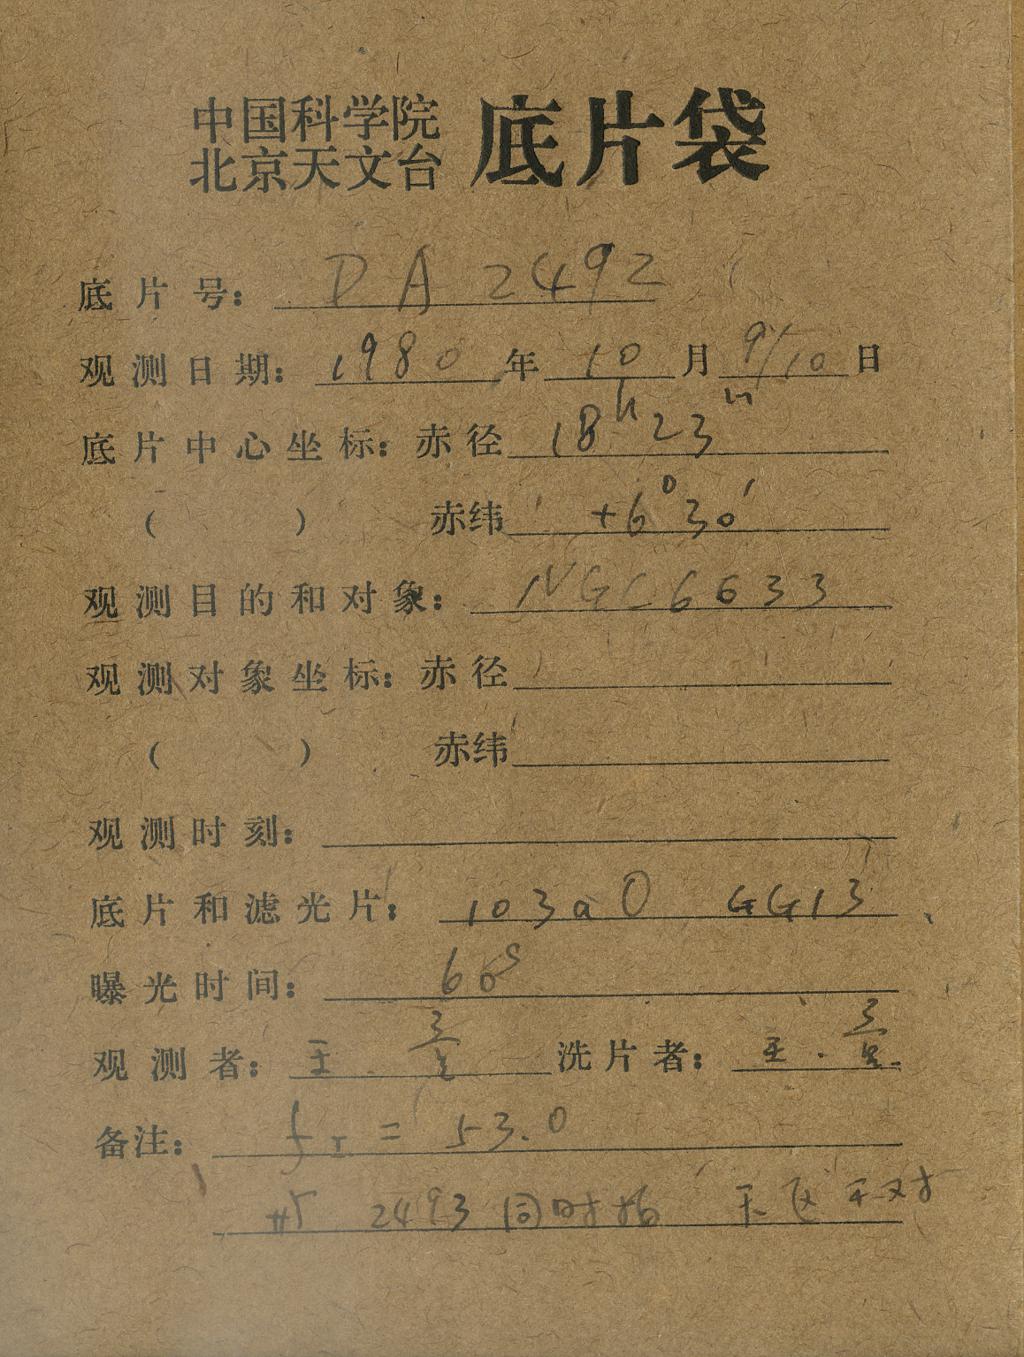 中国科学院
北京天文台 底片袋
底片号: DA 2492
观测日期: 1980 年 10 月 9/10 日
底片中心坐标: 赤径 18h 23m
( ) 赤纬 +6° 30'
观测目的和对象: NGC6633
观测对象坐标: 赤径
( ) 赤纬
观测时刻:
底片和滤光片: 103aO GG13
曝光时间: 60s
观测者: 王 洗片者: 王.
备注: fI = 53.0
2493 同时拍 天区 不对